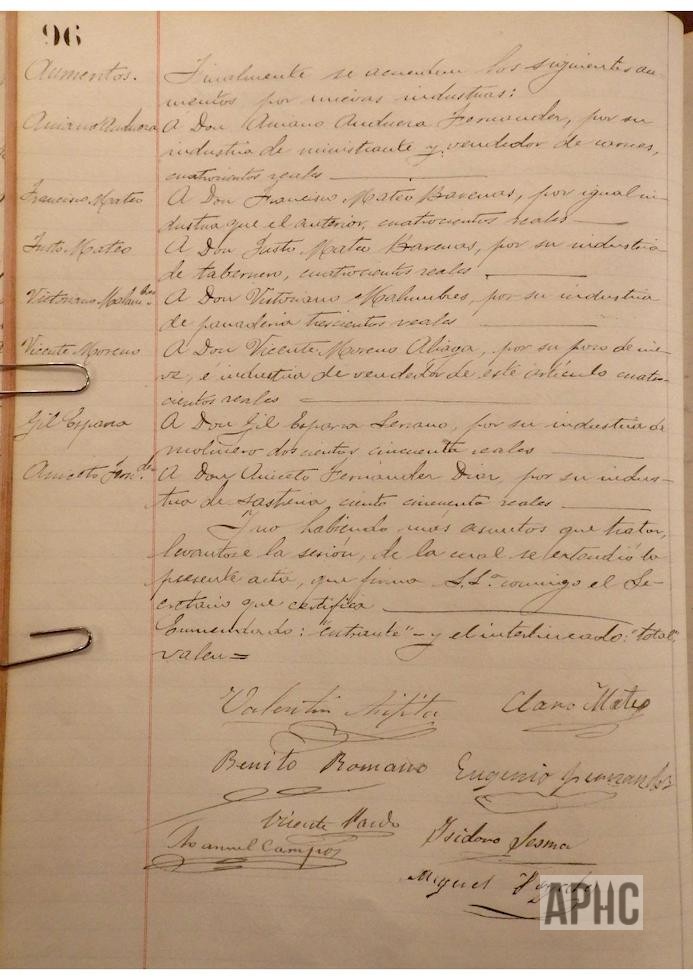 96
Aumentos. Finalmente se acuerdan los siguientes au-
mentos por nuevas industrias:
Amano Anduera A Don Amano Anduera Fernander, por su
industria de ministrante y vendedor de carnes,
cuatrocientos reales
Francisco Mateo A Don Francisco Mateo Barenas, por igual in-
dustria que el anterior, cuatrocientos reales
Justo Mateo A Don Justo Mateo Barenas, por su industria
de tabernero, cuatrocientos reales.
Victoriano A Don Victoriano Malumbres, por su industria
de panaderia trescientos reales
Vicente Moreno A Don Vicente Moreno Aliaga, por su poro de nie-
ve, é industria de vendedor de este artículo cuatro-
cientos reales
Gil Esparra A Don Gil Esparra Serrano, por su industria de
molinero doscientos cincuenta reales
Aniceto Fern.de A Don Aniceto Fernánder Diar, por su indus-
tria de sastreria, ciento cincuenta reales
Y no habiendo mas asuntos que tratar,
levantose la sesión, de la cual se extendió la
presente acta, que firma S.S. conmigo el Se-
cretario que certifica
Enmendado: "entrante" = y el interlineado: "total",
valen =
Valentin Claro Mateo
Benito Romano Eugenio
Vicente Pardo
Manuel Campos Isidoro Sesma
Miguel
APHC